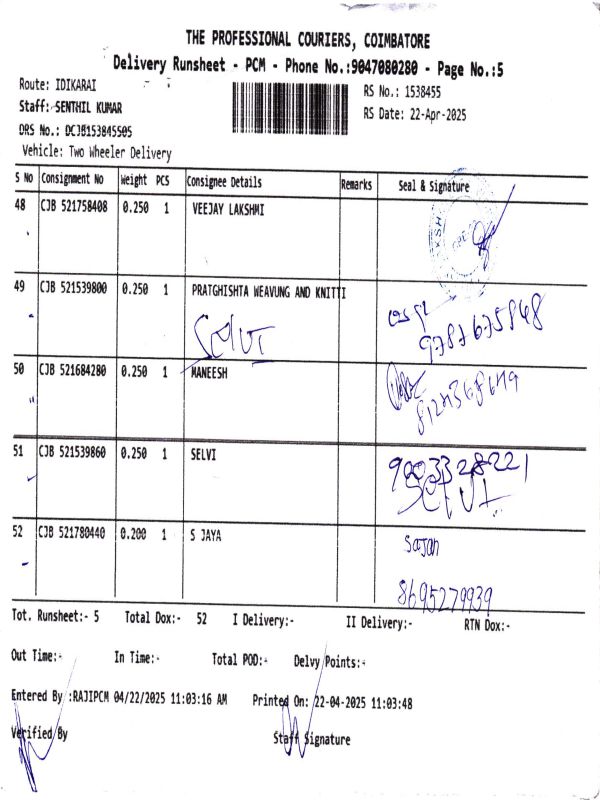 THE PROFESSIONAL COURIERS, COIMBATORE
Delivery Runsheet - PCM - Phone No.:9047080280 - Page No.:5
Route: IDIKARAI
RS No.: 1538455
Staff: SENTHIL KUMAR
RS Date: 22-Apr-2025
DRS No.: DCJB153845505
Vehicle: Two Wheeler Delivery
S No Consignment No Weight PCS Consignee Details Remarks Seal & Signature
48 CJB 521758408 0.250 1 VEEJAY LAKSHMI
49 CJB 521539800 0.250 1 PRATGHISHTA WEAVUNG AND KNITTI
9787675848
50 CJB 521684280 0.250 1 MANEESH
51 CJB 521539860 0.250 1 SELVI
9003328221
52 CJB 521780440 0.200 1 S JAYA
8695279939
Tot. Runsheet:- 5 Total Dox:- 52 I Delivery:- II Delivery:- RTN Dox:-
Out Time:- In Time:- Total POD:- Delvy Points:-
Entered By :RAJIPCM 04/22/2025 11:03:16 AM Printed On: 22-04-2025 11:03:48
Verified By Staff Signature